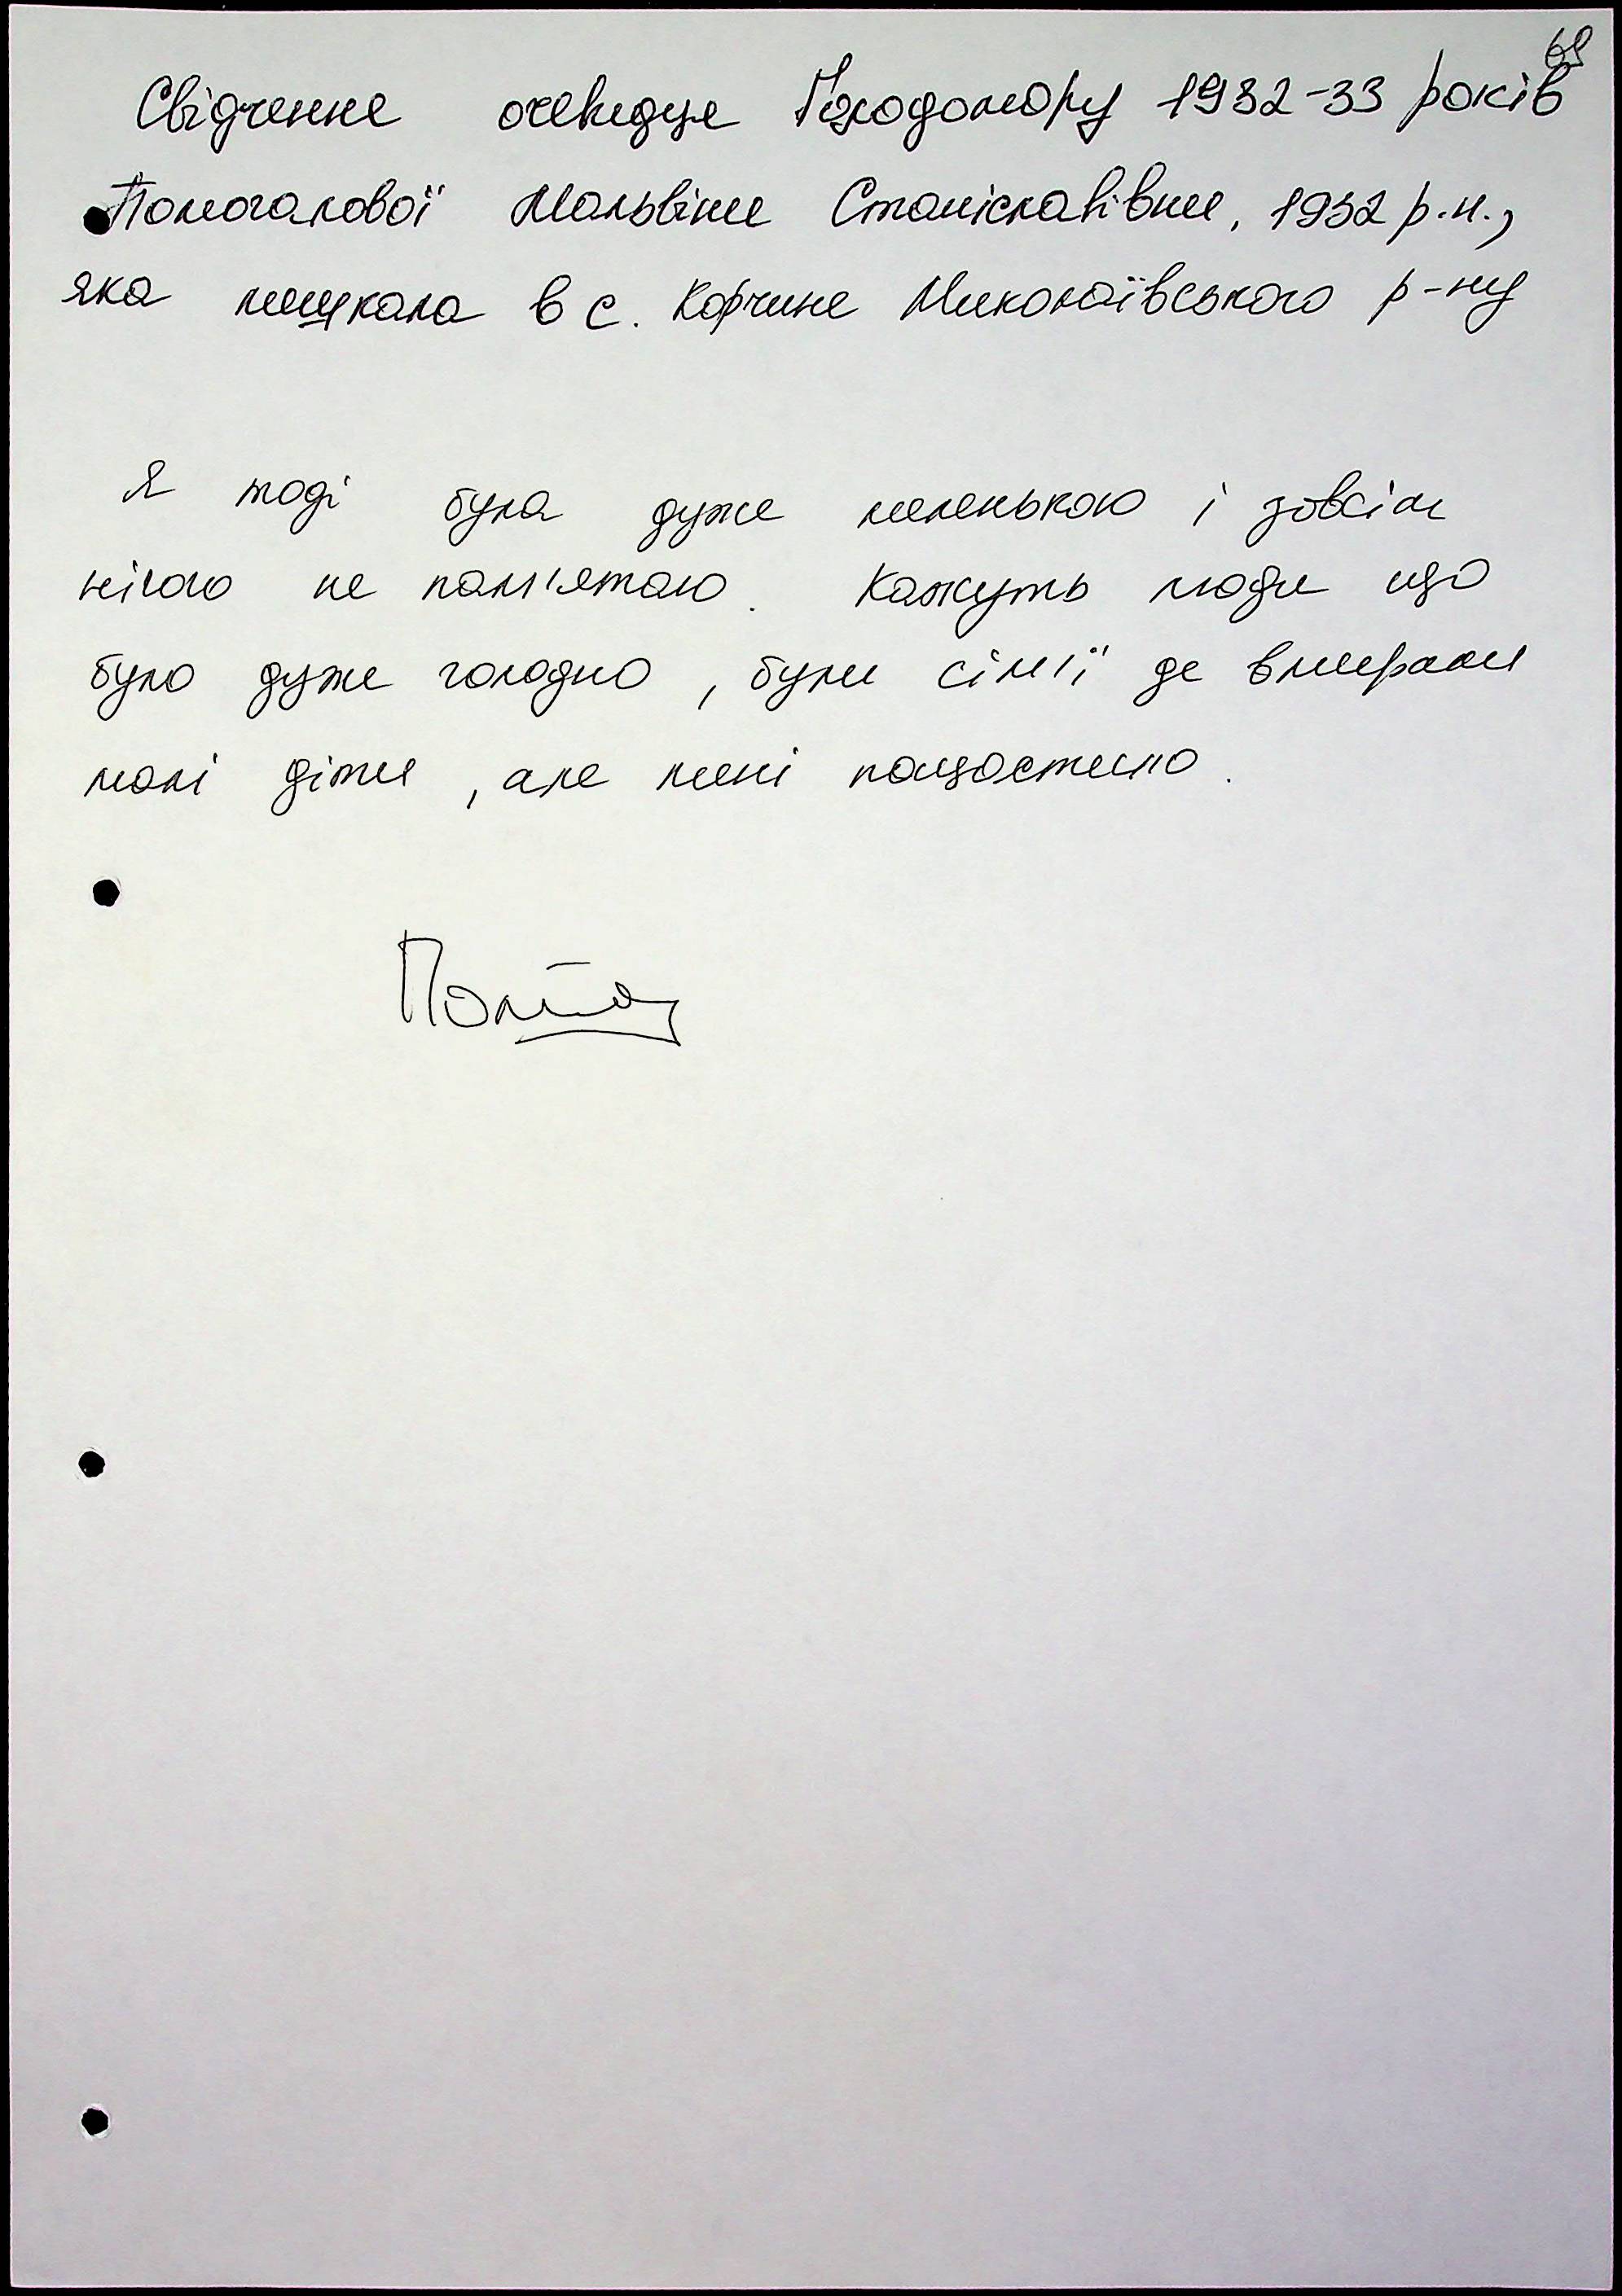 69
Свідчення очевидця Голодомору 1932-33 років
Помогалової Мальвіни Станіславівни, 1932 р.н.,
яка мешкала в с. Корчине Миколаївського р-ну
Я тоді була дуже маленькою і зовсім
нічого не пам'ятаю. Кажуть люди що
було дуже голодно, були сім'ї де вмирали
малі діти, але мені пощастило.